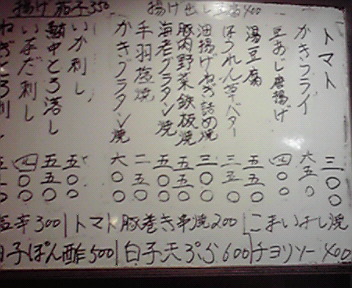 揚げ茄子350
揚げ出し
400
トマト 三〇〇
かきフライ 六五〇
豆あじ唐揚げ 四〇〇
湯豆腐 五〇〇
ほうれん草バター 三五〇
油揚げねぎ詰め焼 三〇〇
豚肉野菜鉄板焼 五五〇
海老グラタン焼 五五〇
手羽塩焼 二五〇
かきグラタン焼 六〇〇
いか刺し 五〇〇
鮪中とろ落し 五五〇
いなだ刺し 四〇〇
ねぎとろ刺し
塩辛300 トマト豚巻き串焼200 こまいよし焼
白子ぽん酢500 白子天ぷら600 チョリソー400